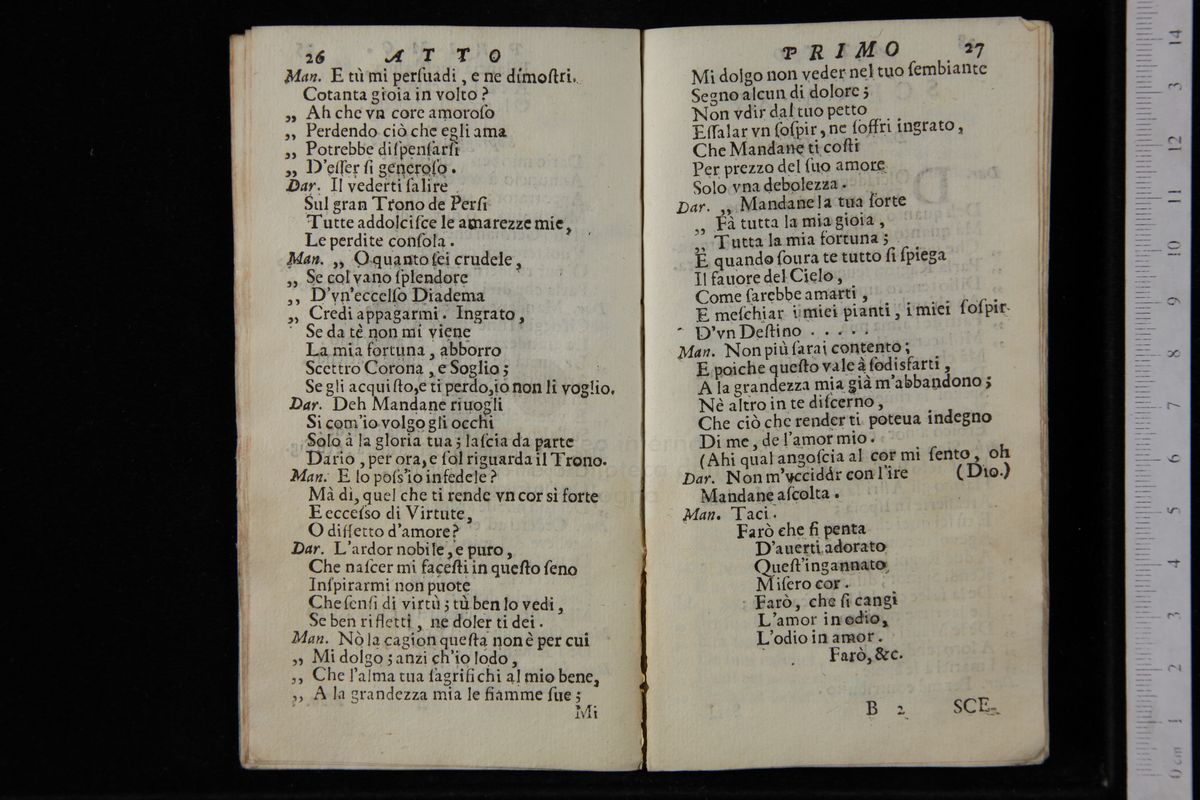 26 ATTO
Man. E tù mi perſuadi, e ne dimoſtri.
Cotanta gioia in volto?
„ Ah che vn core amoroſo
„ Perdendo ciò che egli ama
„ Potrebbe diſpenſarſi
„ D'eſſer ſi generoſo.
Dar. Il vederti ſalire
Sul gran Trono de Perſi
Tutte addolciſce le amarezze mie,
Le perdite conſola.
Man. „ O quanto ſei crudele,
„ Se col vano ſplendore
„ D'vn'eccelſo Diadema
„ Credi appagarmi. Ingrato,
Se da tè non mi viene
La mia fortuna, abborro
Scettro Corona, e Soglio;
Se gli acquiſto,e ti perdo,io non li voglio.
Dar. Deh Mandane riuogli
Si com'io volgo gli occhi
Solo à la gloria tua; laſcia da parte
Dario, per ora, e ſol riguarda il Trono.
Man. E lo poſs'io infedele?
Mà dì, quel che ti rende vn cor sì forte
E ecceſso di Virtute,
O diffetto d'amore?
Dar. L'ardor nobile, e puro,
Che naſcer mi faceſti in queſto ſeno
Inſpirarmi non puote
Che ſenſi di virtù; tù ben lo vedi,
Se ben rifletti, ne doler ti dei.
Man. Nò la cagion queſta non è per cui
„ Mi dolgo; anzi ch'io lodo,
„ Che l'alma tua ſagrifichi al mio bene,
„ A la grandezza mia le fiamme ſue;
Mi
PRIMO 27
Mi dolgo non veder nel tuo ſembiante
Segno alcun di dolore;
Non vdir dal tuo petto
Eſſalar vn ſoſpir, ne ſoffri ingrato,
Che Mandane ti coſti
Per prezzo del ſuo amore
Solo vna debolezza.
Dar. „ Mandane la tua ſorte
„ Fà tutta la mia gioia,
„ Tutta la mia fortuna;
E quando ſoura te tutto ſi ſpiega
Il fauore del Cielo,
Come ſarebbe amarti,
E meſchiar i miei pianti, i miei ſoſpir
D'vn Deſtino . . . . .
Man. Non più ſarai contento;
E poiche queſto vale à ſodisfarti,
A la grandezza mia già m'abbandono;
Nè altro in te diſcerno,
Che ciò che render ti poteua indegno
Di me, de l'amor mio.
(Ahi qual angoſcia al cor mi ſento, oh
Dar. Non m'vccidar con l'ire (Dio.)
Mandane aſcolta.
Man. Taci.
Farò che ſi penta
D'auerti adorato
Queſt'ingannato
Miſero cor.
Farò, che ſi cangi
L'amor in odio,
L'odio in amor.
Farò,&c.
B 2 SCE-